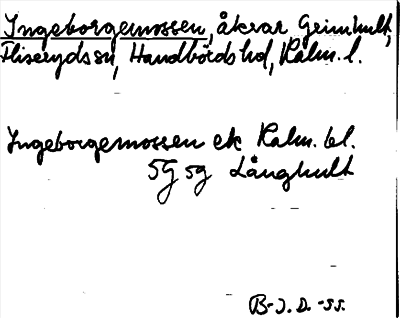 Ingeborgemossen, åkrar Grimhult,
Fliseryds sn, Handbörds hd, Kalm. l.
Ingeborgemossen ek Kalm. bl.
5G 5g Långhult
B-J. D. -55.